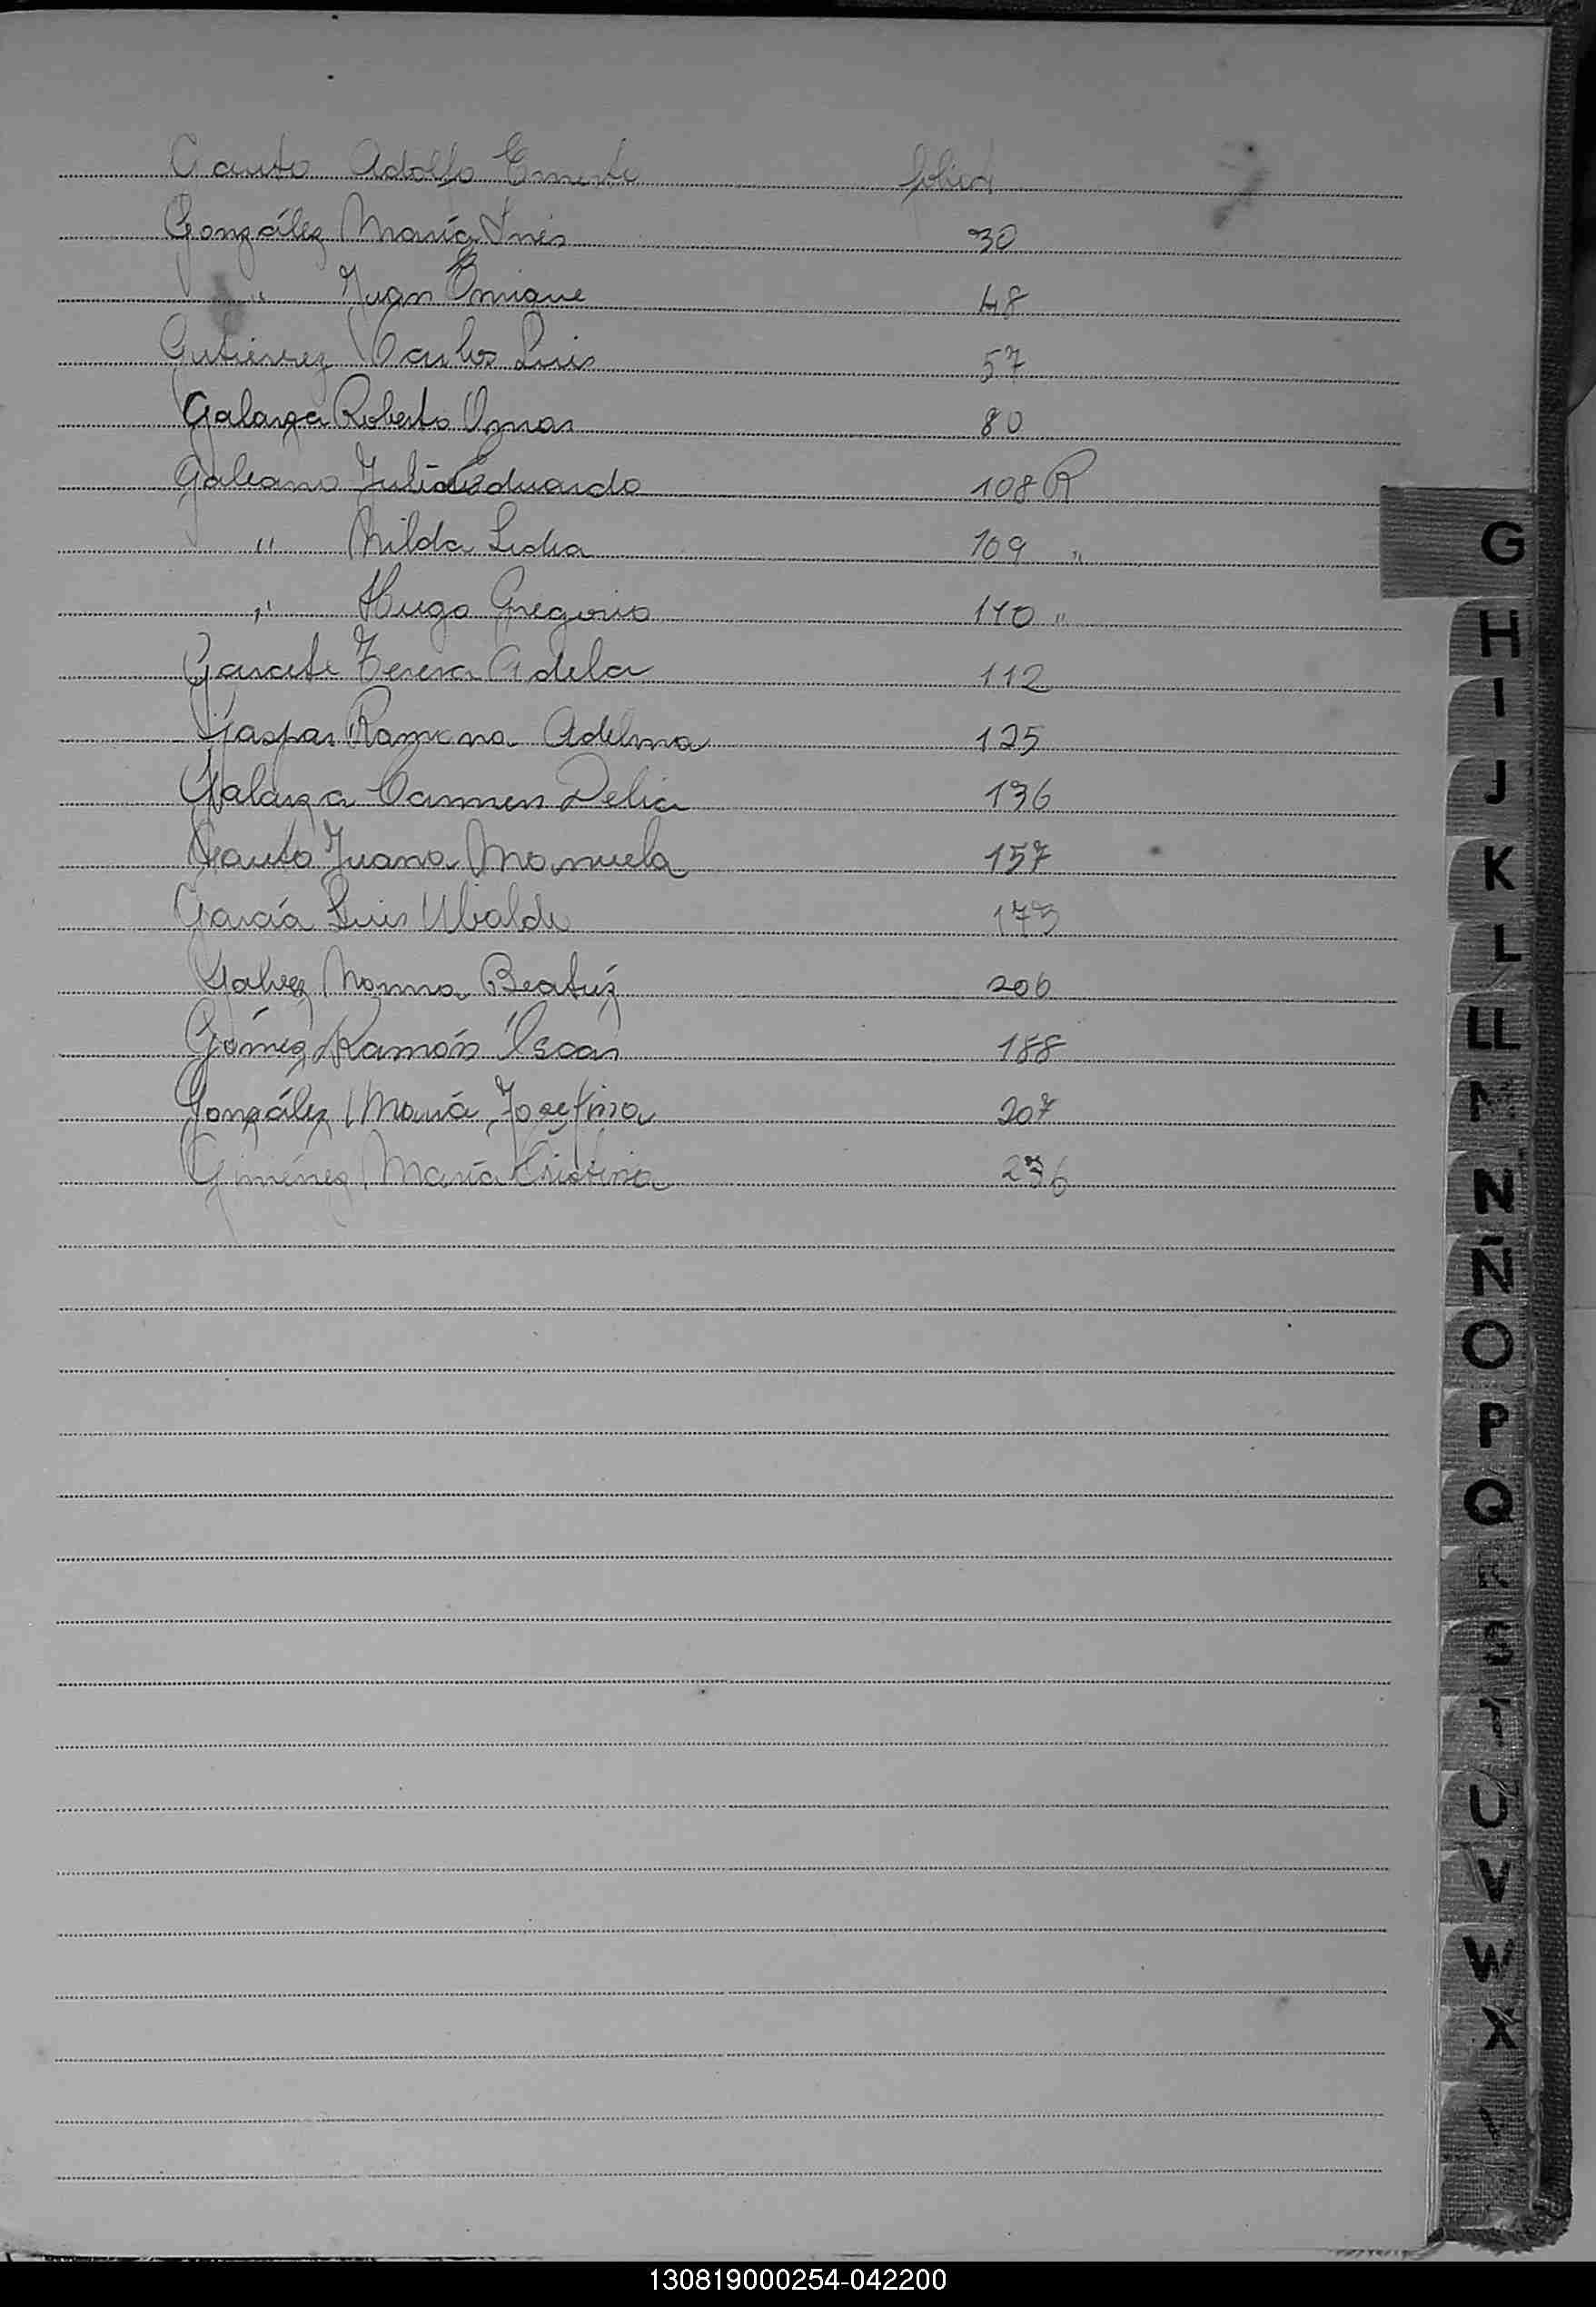 Gauto Adolfo Ernesto folio
González María Inés 30
" Juan Enrique 48
Gutiérrez Carlos Luis 57
Galarza Roberto Omar 80
Galeano Julio Eduardo 108 R
" Nilda Lidia 109 "
" Hugo Gregorio 110 "
Garcete Teresa Adela 112
Gaspar Ramona Adelma 125
Galarza Carmen Delia 136
Gauto Juana Manuela 157
García Luis Ubaldo 173
Galvez Norma Beatríz 206
Gómez Ramón Oscar 188
González María Josefina 207
Giménez María Cristina 236
G
H
I
J
K
L
LL
M
N
Ñ
O
P
Q
R
S
T
U
V
W
X
130819000254-042200